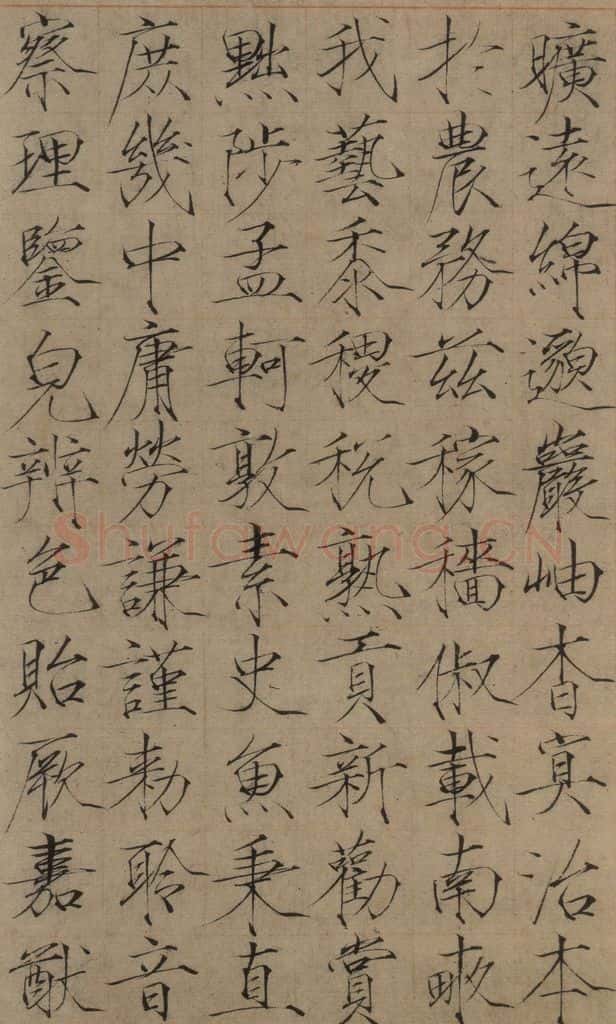 曠遠綿邈巖岫杳冥治本
於農務茲稼穡俶載南畝
我藝黍稷稅熟貢新勸賞
黜陟孟軻敦素史魚秉直
庶幾中庸勞謙謹勅聆音
察理鑒皃辨色貽厥嘉猷
Shufawang.CN